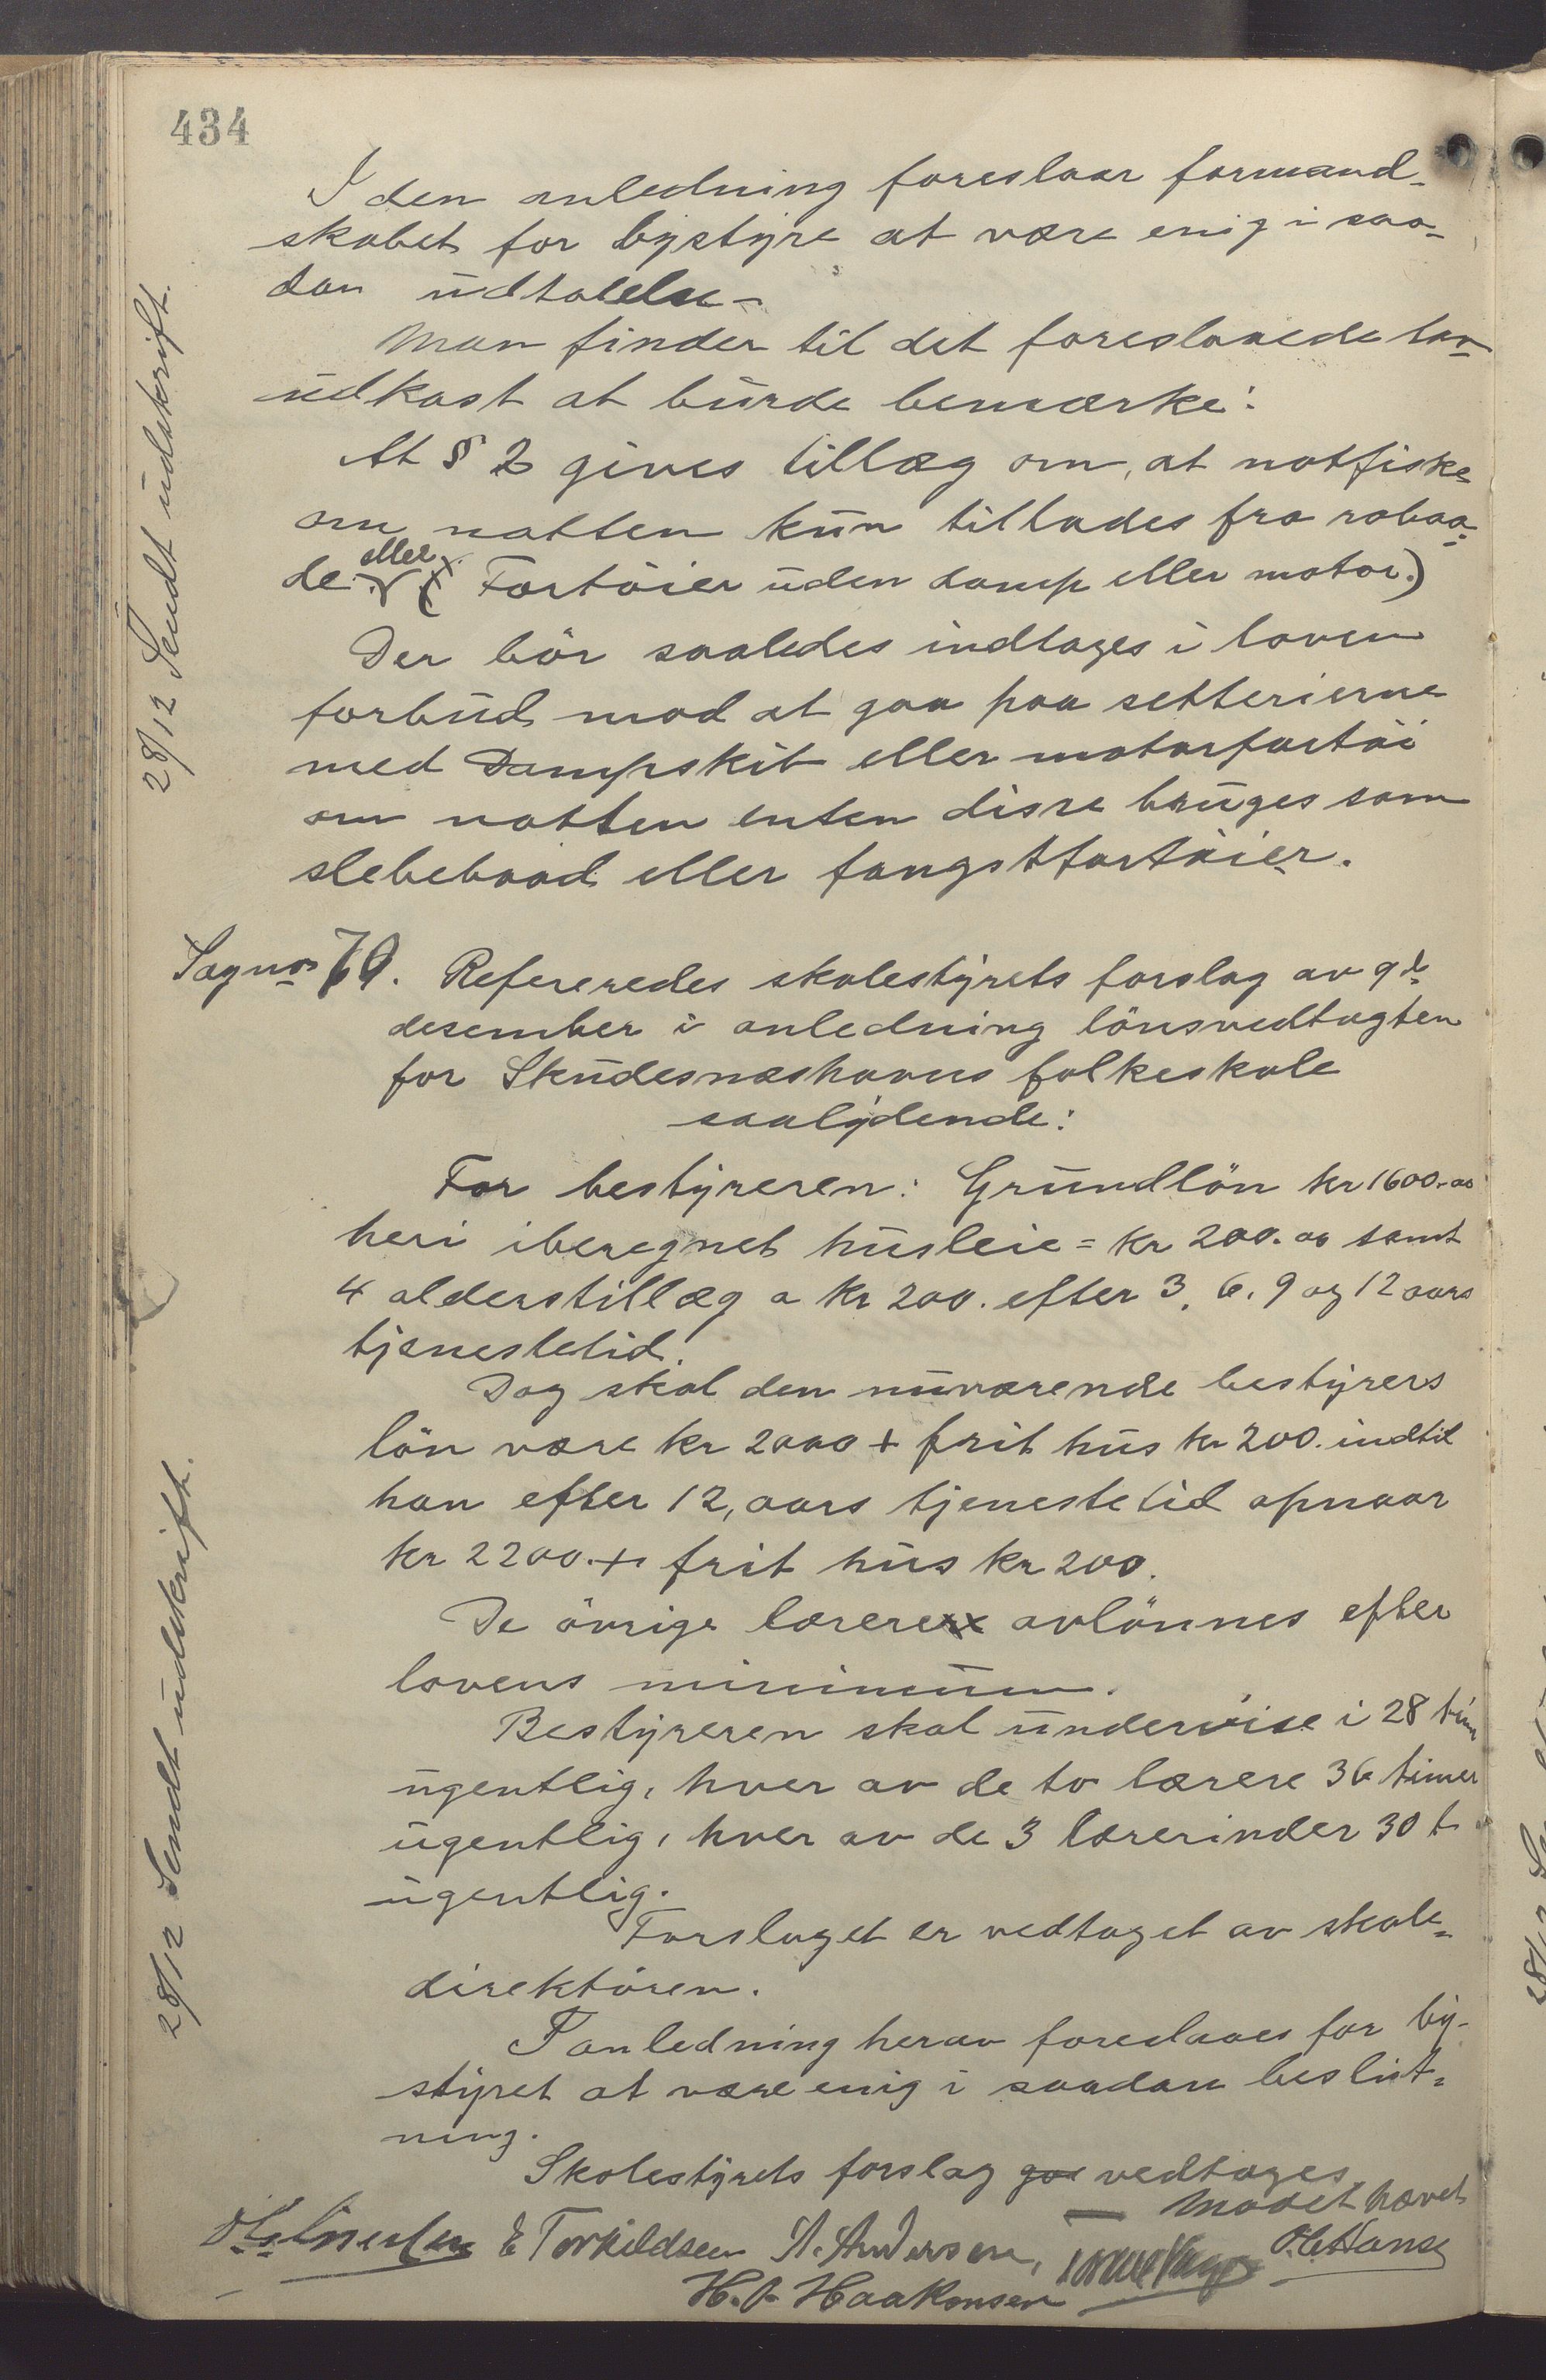 434
I den anledning foreslaar formand-
skabet for bystyre at være enig i saa-
dan udtalelse -
Man finder til det foreslaaede lov
udkast at burde bemærke:
At § 2 gives tillæg om, at notfiske
om natten kun tillades fra robaa-
de eller (Fartöier uden damp eller motor.)
Der bör saaledes indtages i loven
forbud mod at gaa paa setterierne
med Dampskib eller motorfartöi
om natten enten disse bruges som
slebebaad eller fangstfartöier.
28/12 Sendt udskrift.
Sagno 70. Refereredes skolestyrets forslag av 9de
desember i anledning lönsvedtagten
for Skudesnæshavns folkeskole
saalydende:
For bestyreren: Grundlön kr 1600.00
heri iberegnet husleie = kr 200.00 samt
4 alderstillæg a kr 200. efter 3, 6, 9 og 12 aars
tjenestetid.
Dog skal den nuværende bestyrers
lön være kr 2000 + frit hus kr 200. indtil
han efter 12, aars tjenestetid opnaar
kr 2200. + frit hus kr 200.
De övrige lærere avlönnes efter
lovens minimum.
Bestyreren skal undervise i 28 tim
ugentlig, hver av de to lærere 36 timer
ugentlig, hver av de 3 lærerinder 30 t
ugentlig.
Forslaget er vedtaget av skole-
direktören.
I anledning herav foreslaaes for by-
styret at være enig i saadan beslut-
ning.
Skolestyrets forslag vedtages.
Mödet hævet
28/12 Sendt udskrift.
E Torkildsen A. Andersen, O. Hansen
H. J. Haakonsen